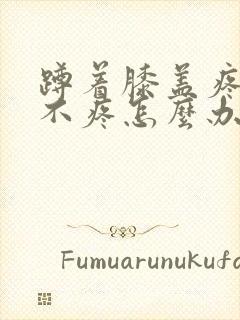 蹲着膝盖疼
不疼怎麼办
Fumuarunukufa